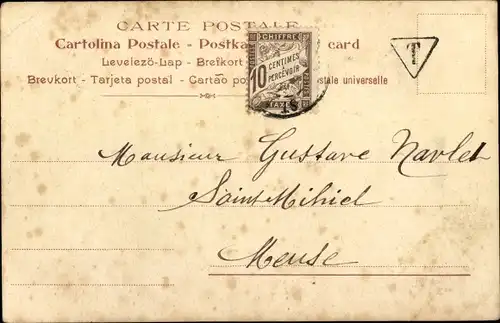 CARTE POSTALE
Cartolina Postale - Postka card
Levelezö-Lap - Brefkort
Brevkort - Tarjeta postal - Cartão po stale universelle
CHIFFRE
10 CENTIMES
À
PERCEVOIR
TAXE
T
18
Monsieur Gustave Navlet
Saint-Mihiel
Meuse